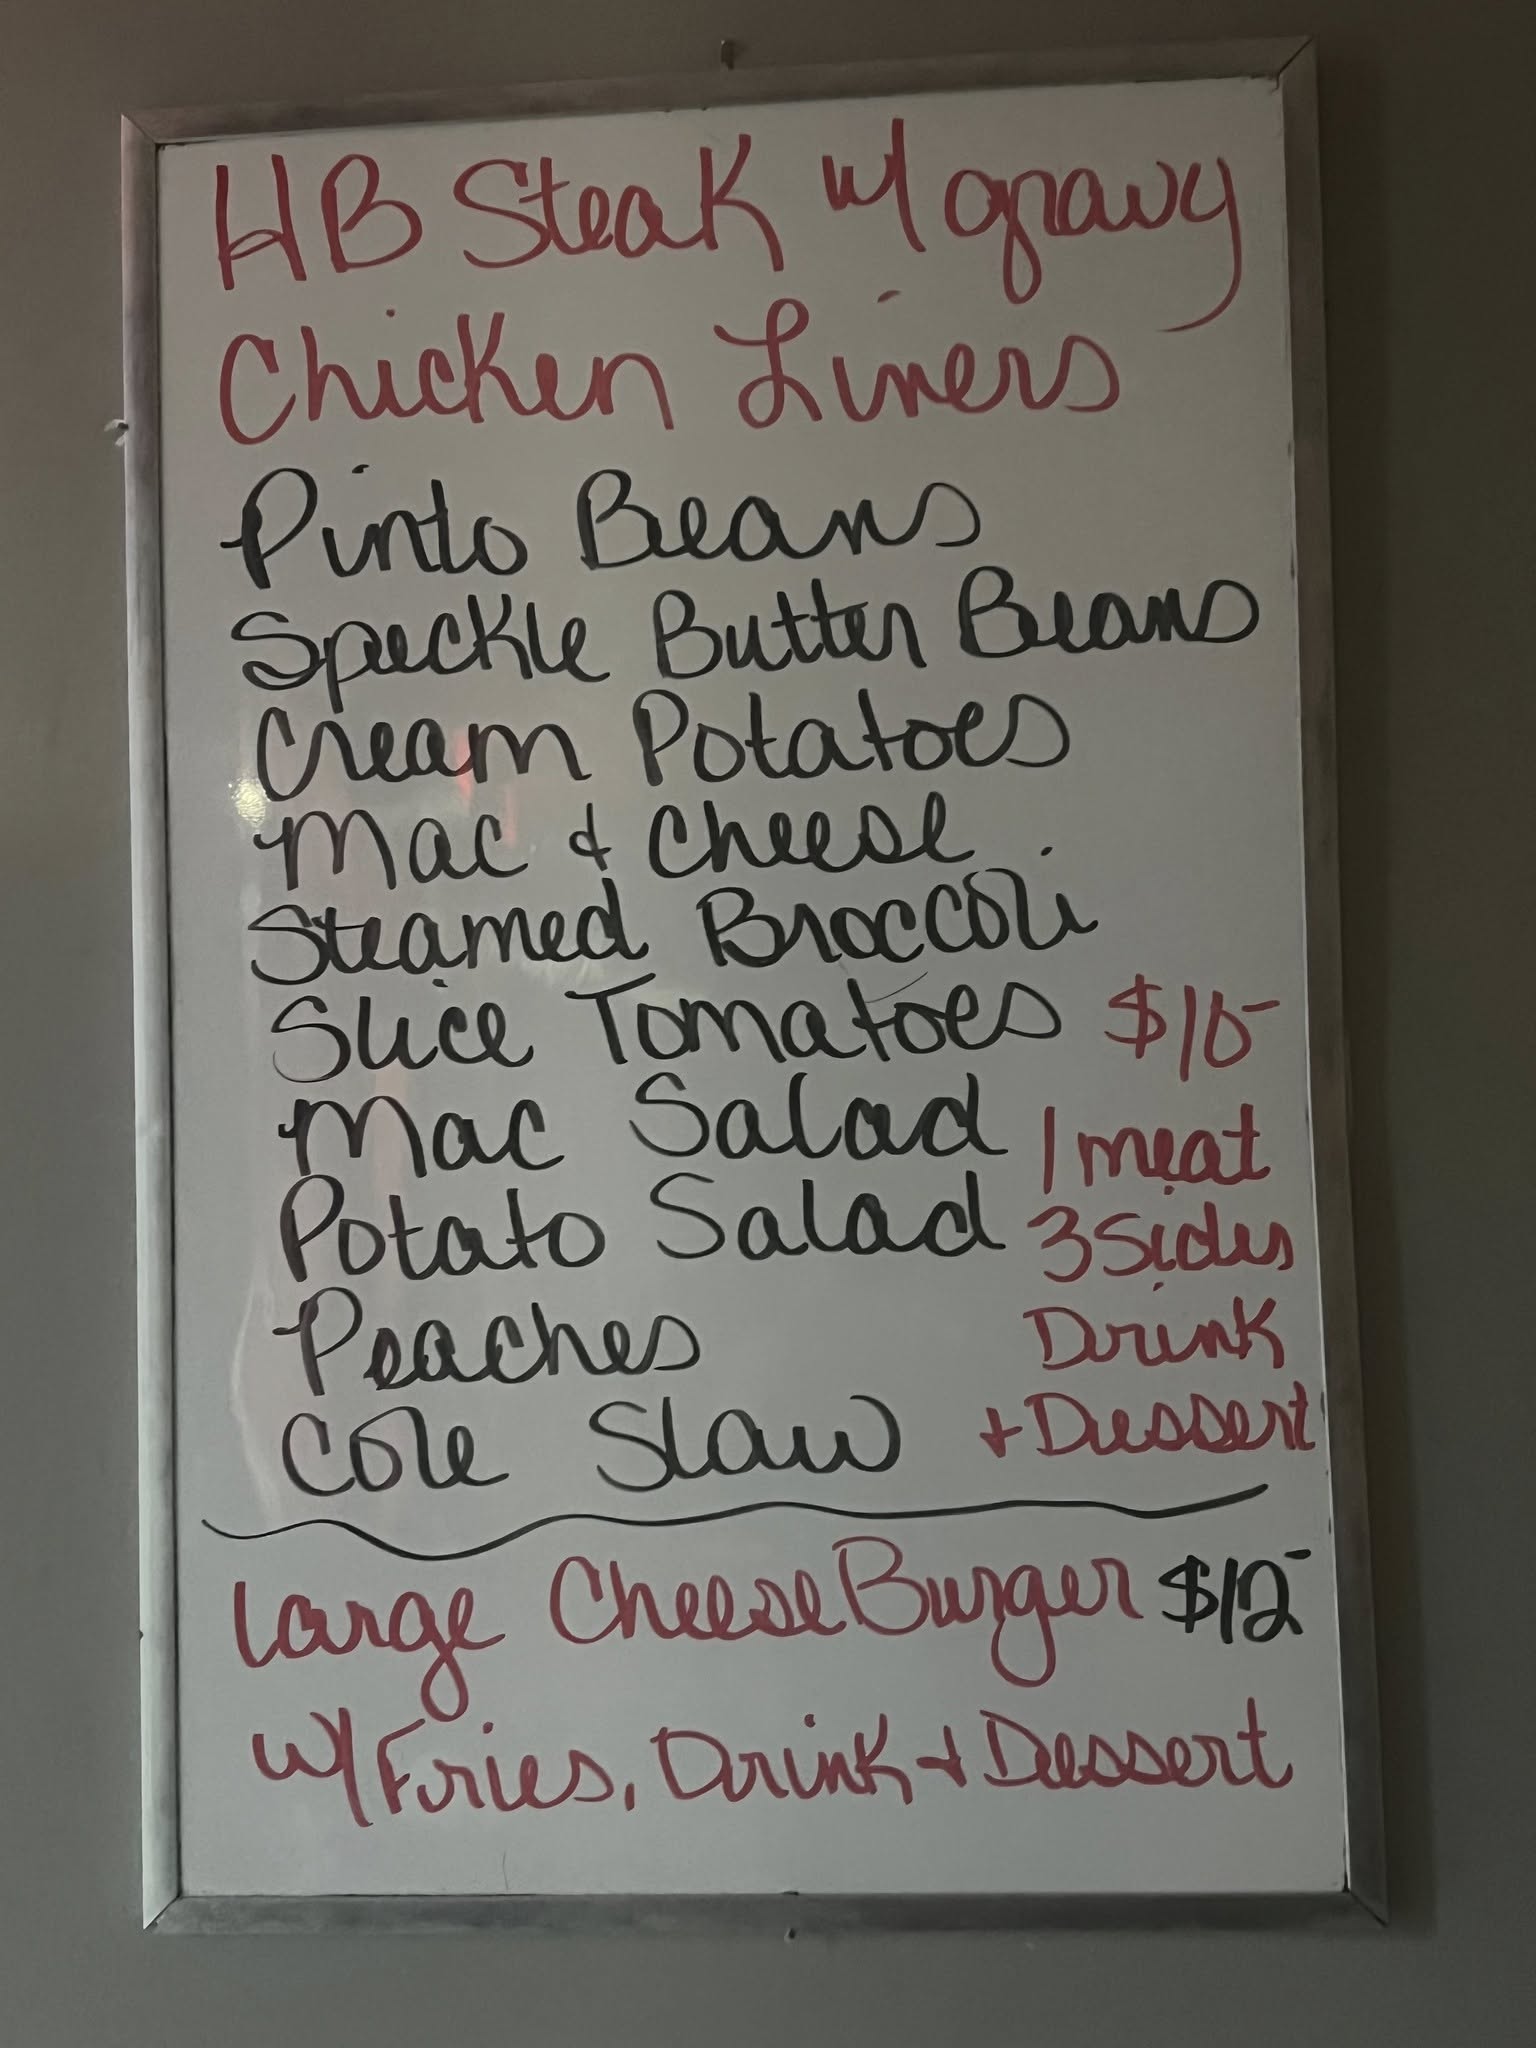 HB Steak w/ gravy
Chicken Livers
Pinto Beans
Speckle Butter Beans
Cream Potatoes
Mac & Cheese
Steamed Broccoli
Slice Tomatoes
Mac Salad
Potato Salad
Peaches
Cole Slaw
$10-
1 meat
3 Sides
Drink
+ Dessert
Large CheeseBurger $12-
w/ Fries, Drink + Dessert